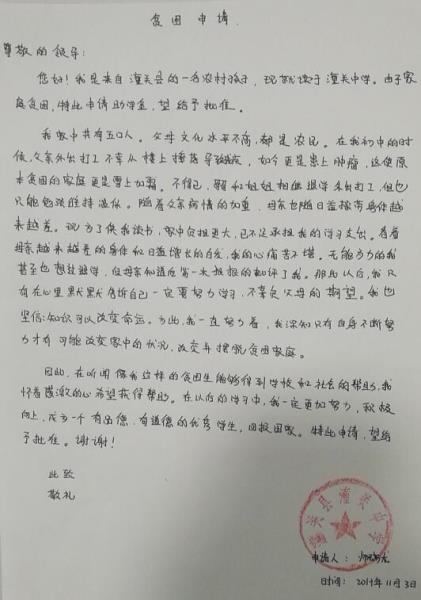 贫困申请
尊敬的领导：
您好！我是来自潼关县的一名农村孩子，现就读于潼关中学。由于家
庭贫困，特此申请助学金，望给予批准。
我家中共有五口人。父母文化水平不高，都是农民。在我初中的时
候，父亲外出打工不幸从楼上摔落导致残疾，如今更是患上肿瘤，这使原
本贫困的家庭更是雪上加霜。不得已，哥哥和姐姐相继退学外出打工，但也
只能勉强维持温饱。随着父亲病情的加重，母亲也随日益操劳身体越
来越差。现为了供我读书，家中负担更大，已不足承担我的学习支出。看着
母亲越来越差的身体和日益增长的白发，我的心痛苦不堪。无能为力的我
甚至也想过退学，但母亲知道后第一次狠狠的批评了我。那次以后，我只
有在心里默默告诉自己一定要努力学习，不辜负父母的期望。我也
坚信：知识可以改变命运。为此，我一直努力着，我深知只有自身不断努
力才有可能改变家中的状况，改变并摆脱贫困家庭。
因此，在听闻像我这样的贫困生能够得到学校和社会的帮助，我
怀着感激的心希望获得帮助。在以后的学习中，我一定更加努力，积极
向上，成为一个有品德，有道德的优秀学生，回报国家。特此申请，望给
予批准。谢谢！
此致
敬礼
潼关县潼关中学
申请人：
时间：2019年11月3日